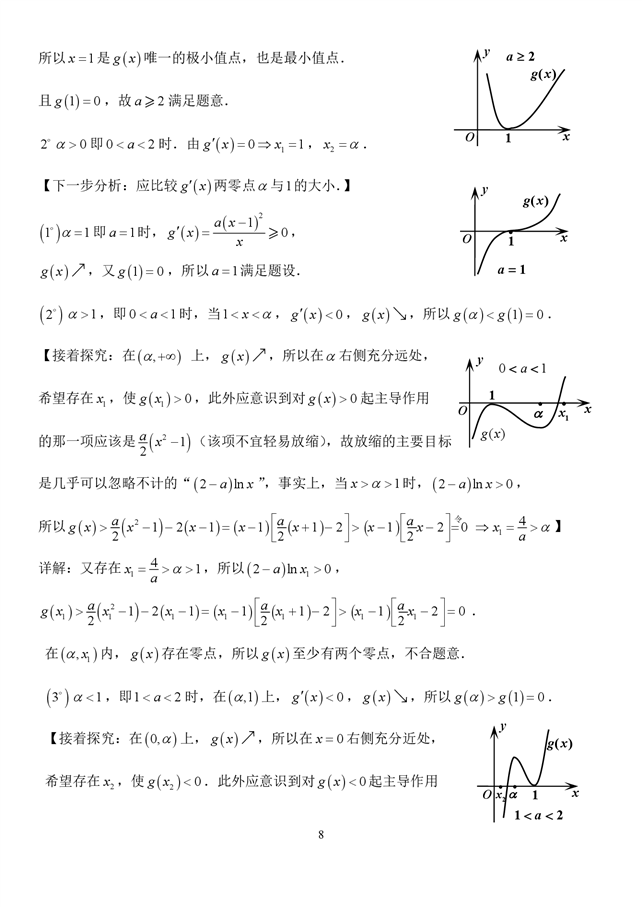 所以 x = 1 是 g(x) 唯一的极小值点，也是最小值点．
且 g(1) = 0，故 a ⩾ 2 满足题意．
2° α > 0 即 0 < a < 2 时．由 g′(x) = 0 ⇒ x₁ = 1，x₂ = α．
y
a ≥ 2
g(x)
O
1
x
【下一步分析：应比较 g′(x) 两零点 α 与 1 的大小．】
(1°) α = 1 即 a = 1 时，g′(x) = a(x − 1)²/x ⩾ 0，
g(x)↗，又 g(1) = 0，所以 a = 1 满足题设．
y
g(x)
O
1
x
a = 1
(2°) α > 1，即 0 < a < 1 时，当 1 < x < α，g′(x) < 0，g(x)↘，所以 g(α) < g(1) = 0．
【接着探究：在 (α, +∞) 上，g(x)↗，所以在 α 右侧充分远处，
希望存在 x₁，使 g(x₁) > 0，此外应意识到对 g(x) > 0 起主导作用
的那一项应该是 a/2(x² − 1)（该项不宜轻易放缩），故放缩的主要目标
y
0 < a < 1
1
O
α
x₁
x
g(x)
是几乎可以忽略不计的“(2 − a)ln x”，事实上，当 x > α > 1 时，(2 − a)ln x > 0，
所以 g(x) > a/2(x² − 1) − 2(x − 1) = (x − 1)[a/2(x + 1) − 2] > (x − 1)[a/2 x − 2] 令= 0 ⇒ x₁ = 4/a > α】
详解：又存在 x₁ = 4/a > α > 1，所以 (2 − a)ln x₁ > 0，
g(x₁) > a/2(x₁² − 1) − 2(x₁ − 1) = (x₁ − 1)[a/2(x₁ + 1) − 2] > (x₁ − 1)[a/2 x₁ − 2] = 0．
在 (α, x₁) 内，g(x) 存在零点，所以 g(x) 至少有两个零点，不合题意．
(3°) α < 1，即 1 < a < 2 时，在 (α, 1) 上，g′(x) < 0，g(x)↘，所以 g(α) > g(1) = 0．
【接着探究：在 (0, α) 上，g(x)↗，所以在 x = 0 右侧充分近处，
希望存在 x₂，使 g(x₂) < 0．此外应意识到对 g(x) < 0 起主导作用
y
g(x)
O
x₂
α
1
x
1 < a < 2
8